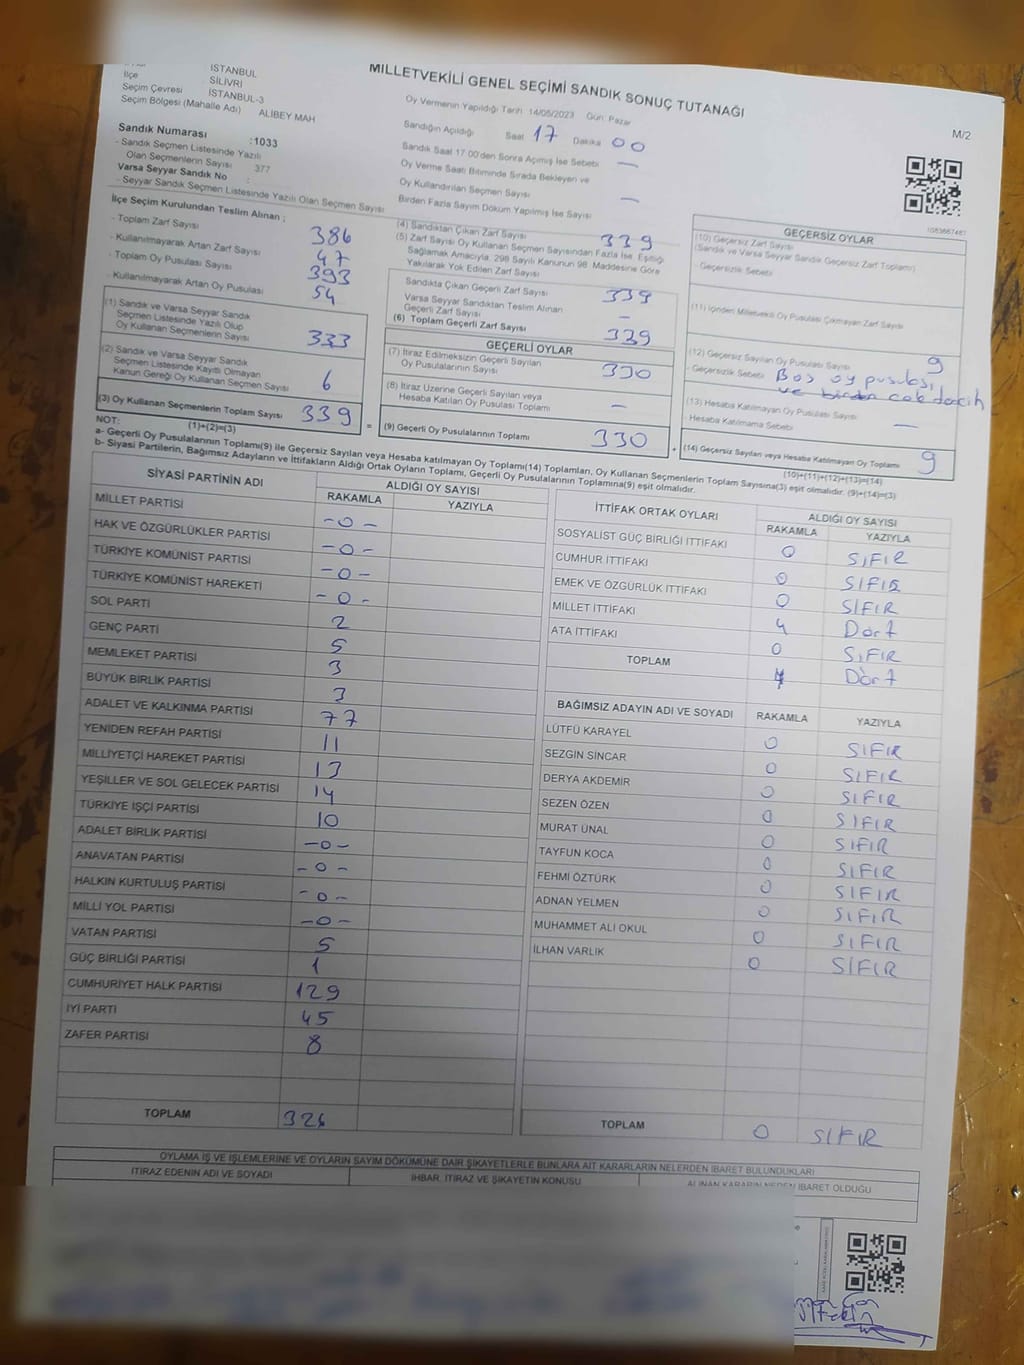 MİLLETVEKİLİ GENEL SEÇİMİ SANDIK SONUÇ TUTANAĞI
M/2
İSTANBUL
İlçe SİLİVRİ
Seçim Çevresi İSTANBUL-3
Seçim Bölgesi (Mahalle Adı) ALİBEY MAH
Sandık Numarası :1033
- Sandık Seçmen Listesinde Yazılı
Olan Seçmenlerin Sayısı 377
Varsa Seyyar Sandık No :
- Seyyar Sandık Seçmen Listesinde Yazılı Olan Seçmen Sayısı
Oy Vermenin Yapıldığı Tarih 14/05/2023 Gün: Pazar
Sandığın Açıldığı Saat 17 Dakika 00
Sandık Saat 17:00'den Sonra Açımış İse Sebebi —
Oy Verme Saati Bitiminde Sırada Bekleyen ve
Oy Kullandırılan Seçmen Sayısı —
Birden Fazla Sayım Döküm Yapılmış İse Sayısı
1083667487
İlçe Seçim Kurulundan Teslim Alınan ;
- Toplam Zarf Sayısı 386
- Kullanılmayarak Artan Zarf Sayısı 47
- Toplam Oy Pusulası Sayısı 393
- Kullanılmayarak Artan Oy Pusulası 54
(1) Sandık ve Varsa Seyyar Sandık
Seçmen Listesinde Yazılı Olup
Oy Kullanan Seçmenlerin Sayısı 333
(2) Sandık ve Varsa Seyyar Sandık
Seçmen Listesinde Kayıtlı Olmayan
Kanun Gereği Oy Kullanan Seçmen Sayısı 6
(3) Oy Kullanan Seçmenlerin Toplam Sayısı 339
(1)+(2)=(3)
(4) Sandıktan Çıkan Zarf Sayısı 339
(5) Zarf Sayısı Oy Kullanan Seçmen Sayısından Fazla İse, Eşitliği
Sağlamak Amacıyla, 298 Sayılı Kanunun 98. Maddesine Göre
Yakılarak Yok Edilen Zarf Sayısı
Sandıkta Çıkan Geçerli Zarf Sayısı 339
Varsa Seyyar Sandıktan Teslim Alınan
Geçerli Zarf Sayısı —
(6) Toplam Geçerli Zarf Sayısı 339
GEÇERLİ OYLAR
(7) İtiraz Edilmeksizin Geçerli Sayılan
Oy Pusulalarının Sayısı 330
(8) İtiraz Üzerine Geçerli Sayılan veya
Hesaba Katılan Oy Pusulası Toplamı —
(9) Geçerli Oy Pusulalarının Toplamı 330
GEÇERSİZ OYLAR
(10) Geçersiz Zarf Sayısı
(Sandık ve Varsa Seyyar Sandık Geçersiz Zarf Toplamı)
- Geçersizlik Sebebi
(11) İçinden Milletvekili Oy Pusulası Çıkmayan Zarf Sayısı
(12) Geçersiz Sayılan Oy Pusulası Sayısı 9
- Geçersizlik Sebebi Boş oy pusulası
ve birden çok tercih
(13) Hesaba Katılmayan Oy Pusulası Sayısı —
Hesaba Katılmama Sebebi
(14) Geçersiz Sayılan veya Hesaba Katılmayan Oy Toplamı 9
(10)+(11)+(12)+(13)=(14)
NOT:
a- Geçerli Oy Pusulalarının Toplamı(9) ile Geçersiz Sayılan veya Hesaba katılmayan Oy Toplamı(14) Toplamları, Oy Kullanan Seçmenlerin Toplam Sayısına(3) eşit olmalıdır. (9)+(14)=(3)
b- Siyasi Partilerin, Bağımsız Adayların ve İttifakların Aldığı Ortak Oyların Toplamı, Geçerli Oy Pusulalarının Toplamına(9) eşit olmalıdır.
SİYASİ PARTİNİN ADI ALDIĞI OY SAYISI
RAKAMLA YAZIYLA
MİLLET PARTİSİ -0-
HAK VE ÖZGÜRLÜKLER PARTİSİ -0-
TÜRKİYE KOMÜNİST PARTİSİ -0-
TÜRKİYE KOMÜNİST HAREKETİ -0-
SOL PARTİ 2
GENÇ PARTİ 5
MEMLEKET PARTİSİ 3
BÜYÜK BİRLİK PARTİSİ 3
ADALET VE KALKINMA PARTİSİ 77
YENİDEN REFAH PARTİSİ 11
MİLLİYETÇİ HAREKET PARTİSİ 13
YEŞİLLER VE SOL GELECEK PARTİSİ 14
TÜRKİYE İŞÇİ PARTİSİ 10
ADALET BİRLİK PARTİSİ -0-
ANAVATAN PARTİSİ -0-
HALKIN KURTULUŞ PARTİSİ -0-
MİLLİ YOL PARTİSİ -0-
VATAN PARTİSİ 5
GÜÇ BİRLİĞİ PARTİSİ 1
CUMHURİYET HALK PARTİSİ 129
İYİ PARTİ 45
ZAFER PARTİSİ 8
TOPLAM 326
İTTİFAK ORTAK OYLARI ALDIĞI OY SAYISI
RAKAMLA YAZIYLA
SOSYALİST GÜÇ BİRLİĞİ İTTİFAKI 0 SIFIR
CUMHUR İTTİFAKI 0 SIFIR
EMEK VE ÖZGÜRLÜK İTTİFAKI 0 SIFIR
MİLLET İTTİFAKI 4 Dört
ATA İTTİFAKI 0 SIFIR
TOPLAM 4 Dört
BAĞIMSIZ ADAYIN ADI VE SOYADI RAKAMLA YAZIYLA
LÜTFÜ KARAYEL 0 SIFIR
SEZGİN SİNCAR 0 SIFIR
DERYA AKDEMİR 0 SIFIR
SEZEN ÖZEN 0 SIFIR
MURAT ÜNAL 0 SIFIR
TAYFUN KOCA 0 SIFIR
FEHMİ ÖZTÜRK 0 SIFIR
ADNAN YELMEN 0 SIFIR
MUHAMMET ALİ OKUL 0 SIFIR
İLHAN VARLIK 0 SIFIR
TOPLAM 0 SIFIR
OYLAMA İŞ VE İŞLEMLERİNE VE OYLARIN SAYIM DÖKÜMÜNE DAİR ŞİKAYETLERLE BUNLARA AİT KARARLARIN NELERDEN İBARET BULUNDUKLARI
İTİRAZ EDENİN ADI VE SOYADI İHBAR, İTİRAZ VE ŞİKAYETİN KONUSU ALINAN KARARIN NEDEN İBARET OLDUĞU